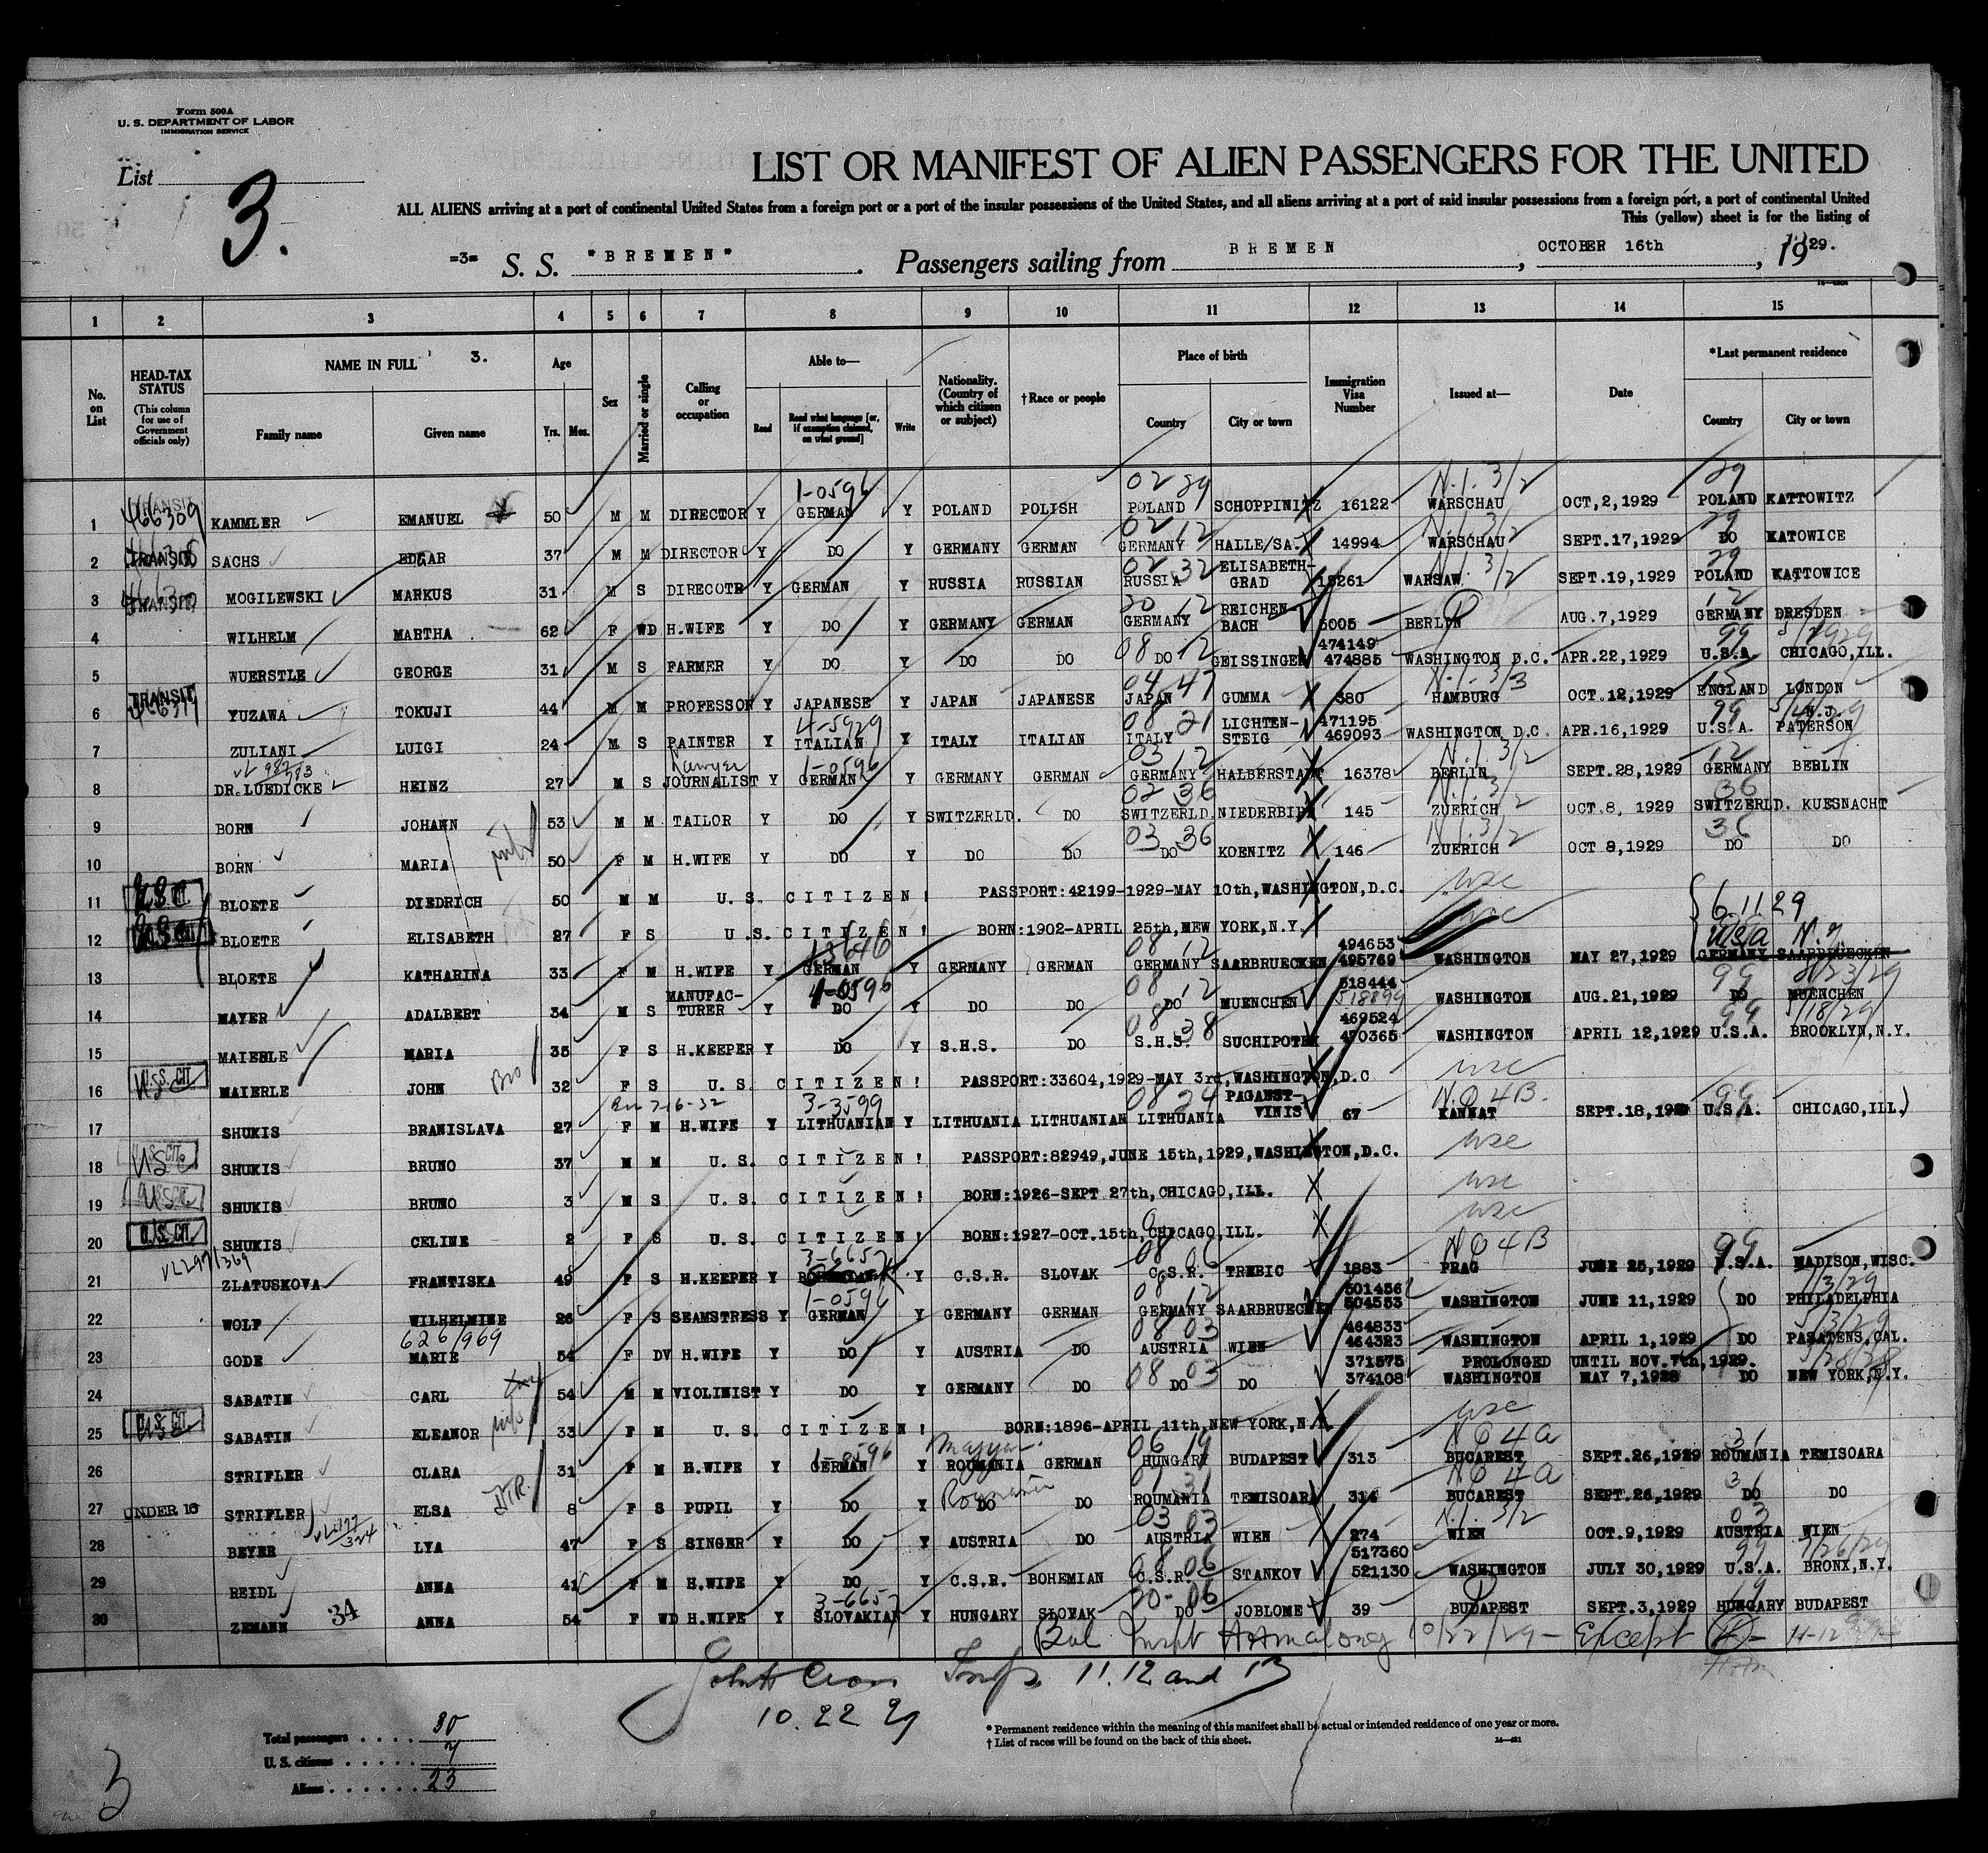 Form 500A
U. S. DEPARTMENT OF LABOR
IMMIGRATION SERVICE
List
3.
LIST OR MANIFEST OF ALIEN PASSENGERS FOR THE UNITED
ALL ALIENS arriving at a port of continental United States from a foreign port or a port of the insular possessions of the United States, and all aliens arriving at a port of said insular possessions from a foreign port, a port of continental United
This (yellow) sheet is for the listing of
=3= S. S. "BREMEN" . Passengers sailing from BREMEN , OCTOBER 16th , 1929.
1 2 3 4 5 6 7 8 9 10 11 12 13 14 15
No. on List
HEAD-TAX STATUS (This column for use of Government officials only)
NAME IN FULL 3.
Family name Given name
Age Yrs. Mos.
Sex
Married or single
Calling or occupation
Able to— Read Read what language [or, if exemption claimed, on what ground] Write
Nationality. (Country of which citizen or subject)
†Race or people
Place of birth Country City or town
Immigration Visa Number
Issued at—
Date
*Last permanent residence Country City or town
1-0596 02 29 N.I. 3/2 29
1 TRANSIT KAMMLER EMANUEL 50 M M DIRECTOR Y GERMAN Y POLAND POLISH POLAND SCHOPPINITZ 16122 WARSCHAU OCT,2,1929 POLAND KATTOWITZ
02 12 N.I. 3/2 29
2 TRANSIT SACHS EDGAR 37 M M DIRECTOR Y DO Y GERMANY GERMAN GERMANY HALLE/SA. 14994 WARSCHAU SEPT.17,1929 DO KATOWICE
02 32 N.I. 3/2 29
3 TRANSIT MOGILEWSKI MARKUS 31 M S DIRECOTR Y GERMAN Y RUSSIA RUSSIAN RUSSIA ELISABETH-GRAD 15261 WARSAW SEPT.19,1929 POLAND KATTOWICE
20 12 12
4 WILHELM MARTHA 62 F WD H.WIFE Y DO Y GERMANY GERMAN GERMANY REICHEN BACH 5005 BERLIN AUG.7,1929 GERMANY DRESDEN
08 12 99
5 WUERSTLE GEORGE 31 M S FARMER Y DO Y DO DO DO GEISSINGEN 474149 474885 WASHINGTON D.C. APR.22,1929 U.S.A. CHICAGO,ILL.
04 47 N.I. 3/3 15
6 TRANSIT YUZAWA TOKUJI 44 M M PROFESSOR Y JAPANESE Y JAPAN JAPANESE JAPAN GUMMA 380 HAMBURG OCT.12,1929 ENGLAND LONDON
4-5929 08 21 99
7 ZULIANI LUIGI 24 M S PAINTER Y ITALIAN Y ITALY ITALIAN ITALY LICHTEN-STEIG 471195 469093 WASHINGTON D.C. APR.16,1929 U.S.A. PATERSON N.J.
Lawyer 1-0596 03 12 N.I. 3/2 12
8 DR.LUEDICKE HEINZ 27 M S JOURNALIST Y GERMAN Y GERMANY GERMAN GERMANY HALBERSTADT 16378 BERLIN SEPT.28,1929 GERMANY BERLIN
02 36 N.I. 3/2 36
9 BORN JOHANN 53 M M TAILOR Y DO Y SWITZERLD. DO SWITZERLD. NIEDERBIPP 145 ZUERICH OCT.8, 1929 SWITZERLD. KUESNACHT
03 36 N.I. 3/2 36
10 BORN MARIA 50 F M H.WIFE Y DO Y DO DO DO KOENITZ 146 ZUERICH OCT 8,1929 DO DO
11 BLOETE DIEDRICH 50 M M U.S. CITIZEN! PASSPORT:42199-1929-MAY 10th,WASHINGTON,D.C. usc
12 BLOETE ELISABETH 27 F S U.S.CITIZEN! BORN:1902-APRIL 25th,NEW YORK,N.Y. usc 6 11 29
08 12 USA N.Y.
13 BLOETE KATHARINA 33 F M H.WIFE Y GERMAN Y GERMANY GERMAN GERMANY SAARBRUECKEN 494653 495769 WASHINGTON MAY 27,1929 GERMANY SAARBRUECKEN
1-0596 08 12 99 8/23/29
14 MAYER ADALBERT 34 M S MANUFAC-TURER Y DO Y DO DO DO MUENCHEN 518444 518899 WASHINGTON AUG.21,1929 DO MUENCHEN
08 38 99 5/18/29
15 MAIERLE MARIA 35 F S H.KEEPER Y DO Y S.H.S. DO S.H.S. SUCHIPOTEK 469524 470365 WASHINGTON APRIL 12,1929 U.S.A. BROOKLYN,N.Y.
16 U.S. CIT. MAIERLE JOHN Bro 32 F S U.S. CITIZEN! PASSPORT:33604,1929-MAY 3rd,WASHINGTON,D.C usc
3-3599 08 24 N.Q 4B. 99
17 SHUKIS BRANISLAVA 27 F M H.WIFE Y LITHUANIAN Y LITHUANIA LITHUANIAN LITHUANIA PAGANST-VINIS 67 KANNAT SEPT.18,1929 U.S.A. CHICAGO,ILL.
18 U.S. CIT. SHUKIS BRUNO 37 M M U.S. CITIZEN! PASSPORT:82949,JUNE 15th,1929,WASHINGTON,D.C. usc
19 SHUKIS BRUNO 3 M S U.S. CITIZEN! BORN:1926-SEPT 27th,CHICAGO,ILL. usc
20 U.S. CIT. SHUKIS CELINE 2 F S U.S. CITIZEN! BORN:1927-OCT.15th,CHICAGO,ILL. usc
3-6657 08 06 NQ4B 99
21 ZLATUSKOVA FRANTISKA 49 F S H.KEEPER Y Y C.S.R. SLOVAK C.S.R. TREBIC 1883 PRAG JUNE 25,1929 U.S.A. MADISON,WISC.
1-0596 08 12
22 WOLF WILHELMINE 26 F S SEAMSTRESS Y GERMAN Y GERMANY GERMAN GERMANY SAARBRUECKEN 501456 504553 WASHINGTON JUNE 11,1929 DO PHILADELPHIA
626/969 08 03 5/3/29
23 GODE MARIE 54 F DV H.WIFE Y DO Y AUSTRIA DO AUSTRIA WIEN 464833 464323 WASHINGTON APRIL 1,1929 DO PASATENS,CAL.
371575 PROLONGED UNTIL NOV.7th,1929.
24 SABATIN CARL 54 M M VIOLINIST Y DO Y GERMANY DO 08 DO 03 DO 374108 WASHINGTON MAY 7,1928 DO NEW YORK,N.Y.
25 U.S. CIT. SABATIN ELEANOR 33 F M U.S. CITIZEN! BORN:1896-APRIL 11th,NEW YORK,N.Y. usc
1-0596 Magyar. 06 19 NQ 4a 31
26 STRIFLER CLARA 31 F M H.WIFE Y GERMAN Y ROUMANIA GERMAN HUNGARY BUDAPEST 313 BUCAREST SEPT.26,1929 ROUMANIA TEMISOARA
Roumania 07 31 NQ 4a 31
27 UNDER 16 STRIFLER ELSA DTR. 8 F S PUPIL Y DO Y DO DO ROUMANIA TEMISOARA 314 BUCAREST SEPT.26,1929 DO DO
03 03 N.I. 3/2 03
28 BEYER LYA 47 F S SINGER Y DO Y AUSTRIA DO AUSTRIA WIEN 274 WIEN OCT.9,1929 AUSTRIA WIEN
08 06 99 7/26/29
29 REIDL ANNA 41 F M H.WIFE Y DO Y C.S.R. BOHEMIAN C.S.R. STANKOV 517360 521130 WASHINGTON JULY 30,1929 U.S.A. BRONX,N.Y.
3-6657 20-06 19
30 ZEMANN 34 ANNA 54 F WD H.WIFE Y SLOVAKIAN Y HUNGARY SLOVAK DO JOBLOME 39 BUDAPEST SEPT.3,1929 HUNGARY BUDAPEST
Bal Inspt 10/22/29- Except
11.12 and 13
10.22 29
Total passengers . . . . 30
U. S. citizens . . . . . 7
Aliens . . . . . . 23
* Permanent residence within the meaning of this manifest shall be actual or intended residence of one year or more.
† List of races will be found on the back of this sheet.
3